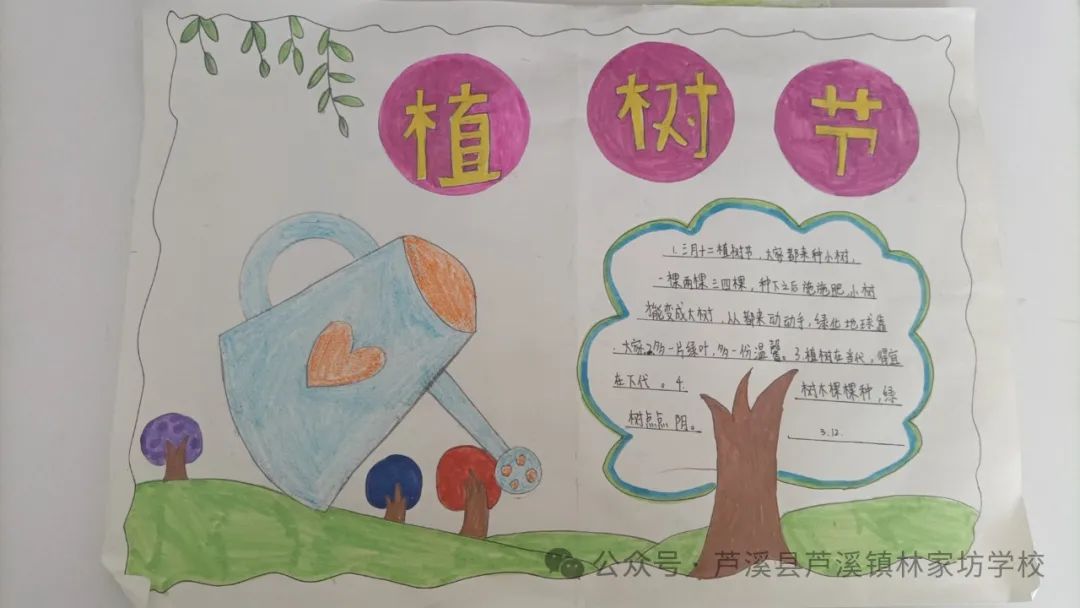 植 树 节
1.三月十二植树节,大家都来种小树,
一棵两棵三四棵,种下之后施施肥,小树
就能变成大树,从都来动动手,绿化地球靠
大家2多一片绿叶,多一份温馨。3.植树在当代,
在下代。4. 树木棵棵种,绿
树点点阴。
3.12.
公众号·芦溪县芦溪镇林家坊学校